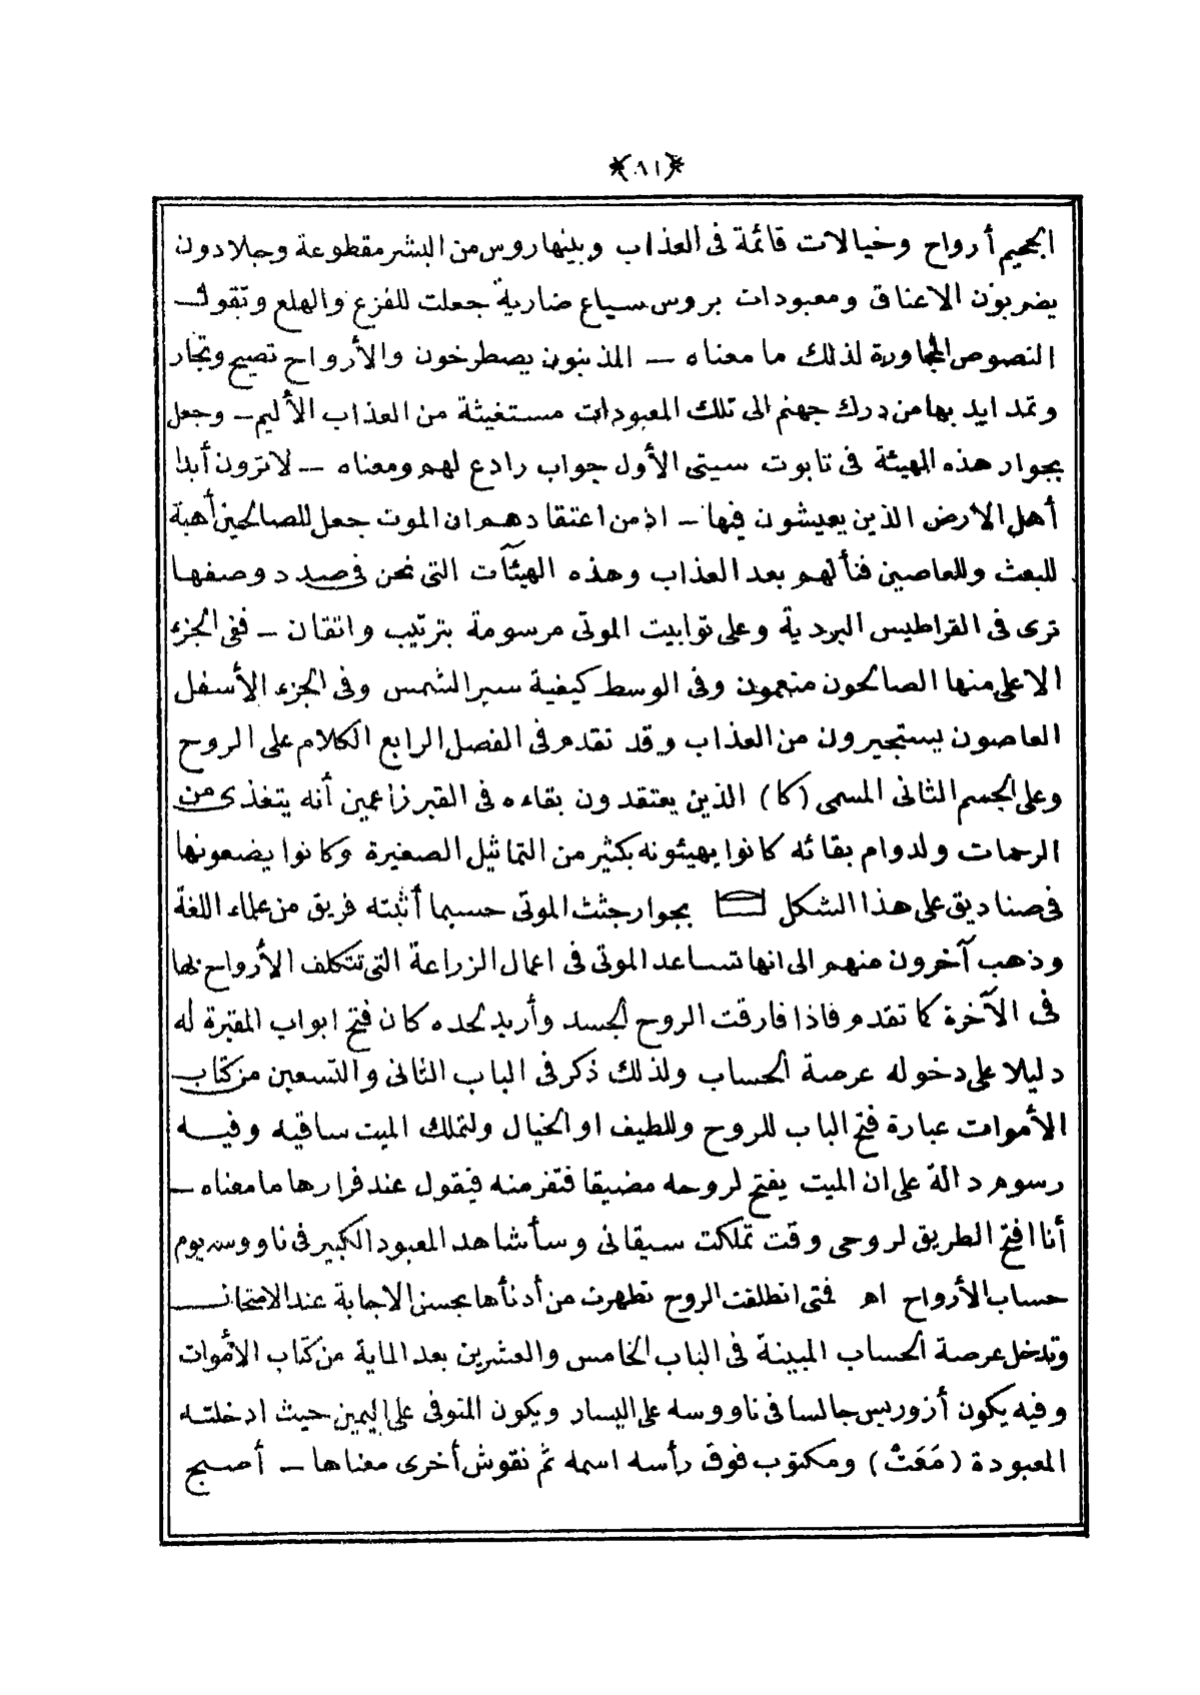 (٨١)
الجحيم أرواح وخيالات قائمة فى العذاب وبينها روس من البشر مقطوعة وجلادون
يضربون الاعناق ومعبودات بروس سباع ضارية جعلت للفزع والهلع وتقول
النصوص المجاورة لذلك ما معناه — المذنبون يصطرخون والأرواح تصيح وتجار
وتمد ايد بها من درك جهنم الى تلك المعبودات مستغيثة من العذاب الأليم — وجعل
بجوار هذه الهيئة فى تابوت سيتى الأول جواب رادع لهم ومعناه — لا ترون أبدا
أهل الارض الذين يعيشون فيها — اذ من اعتقادهم ان الموت جعل للصالحين أهبة
للبعث وللعاصين فنألهم بعد العذاب وهذه الهيئآت التى نحن فى صدد وصفها
ترى فى القراطيس البردية وعلى توابيت الموتى مرسومة بترتيب واتقان — ففى الجزء
الاعلى منها الصالحون منعمون وفى الوسط كيفية سير الشمس وفى الجزء الأسفل
العاصون يستجيرون من العذاب وقد تقدم فى الفصل الرابع الكلام على الروح
وعلى الجسم الثانى المسمى (كا) الذين يعتقدون بقاءه فى القبر زاعمين أنه يتغذى من
الرحمات ولدوام بقائه كانوا يهيئونه بكثير من التماثيل الصغيرة وكانوا يضعونها
فى صناديق على هذا الشكل بجوار جثث الموتى حسبما أثبته فريق من علماء اللغة
وذهب آخرون منهم الى انها تساعد الموتى فى اعمال الزراعة التى تتكلف الأرواح بها
فى الآخرة كما تقدم فاذا فارقت الروح الجسد وأريد لحده كان فتح ابواب المقبرة له
دليلا على دخوله عرصة الحساب ولذلك ذكر فى الباب الثانى والتسعين من كتاب
الأموات عبارة فتح الباب للروح وللطيف او الخيال ولتملك الميت ساقيه وفيه
رسوم دالة على ان الميت يفتح لروحه مضيقا فتفر منه فيقول عند فرارها ما معناه —
أنا افتح الطريق لروحى وقت تملكت سيقانى وسأشاهد المعبود الكبير فى ناووسه يوم
حساب الأرواح اه فمتى انطلقت الروح تطهرت من أدنأها بحسن الاجابة عند الامتحان
وتدخل عرصة الحساب المبينة فى الباب الخامس والعشرين بعد الماية من كتاب الأموات
وفيه يكون أزوريس جالسا فى ناووسه على اليسار ويكون المتوفى على اليمين حيث ادخلته
المعبودة (مَعَتْ) ومكتوب فوق رأسه اسمه ثم نقوش أخرى معناها — أصبح